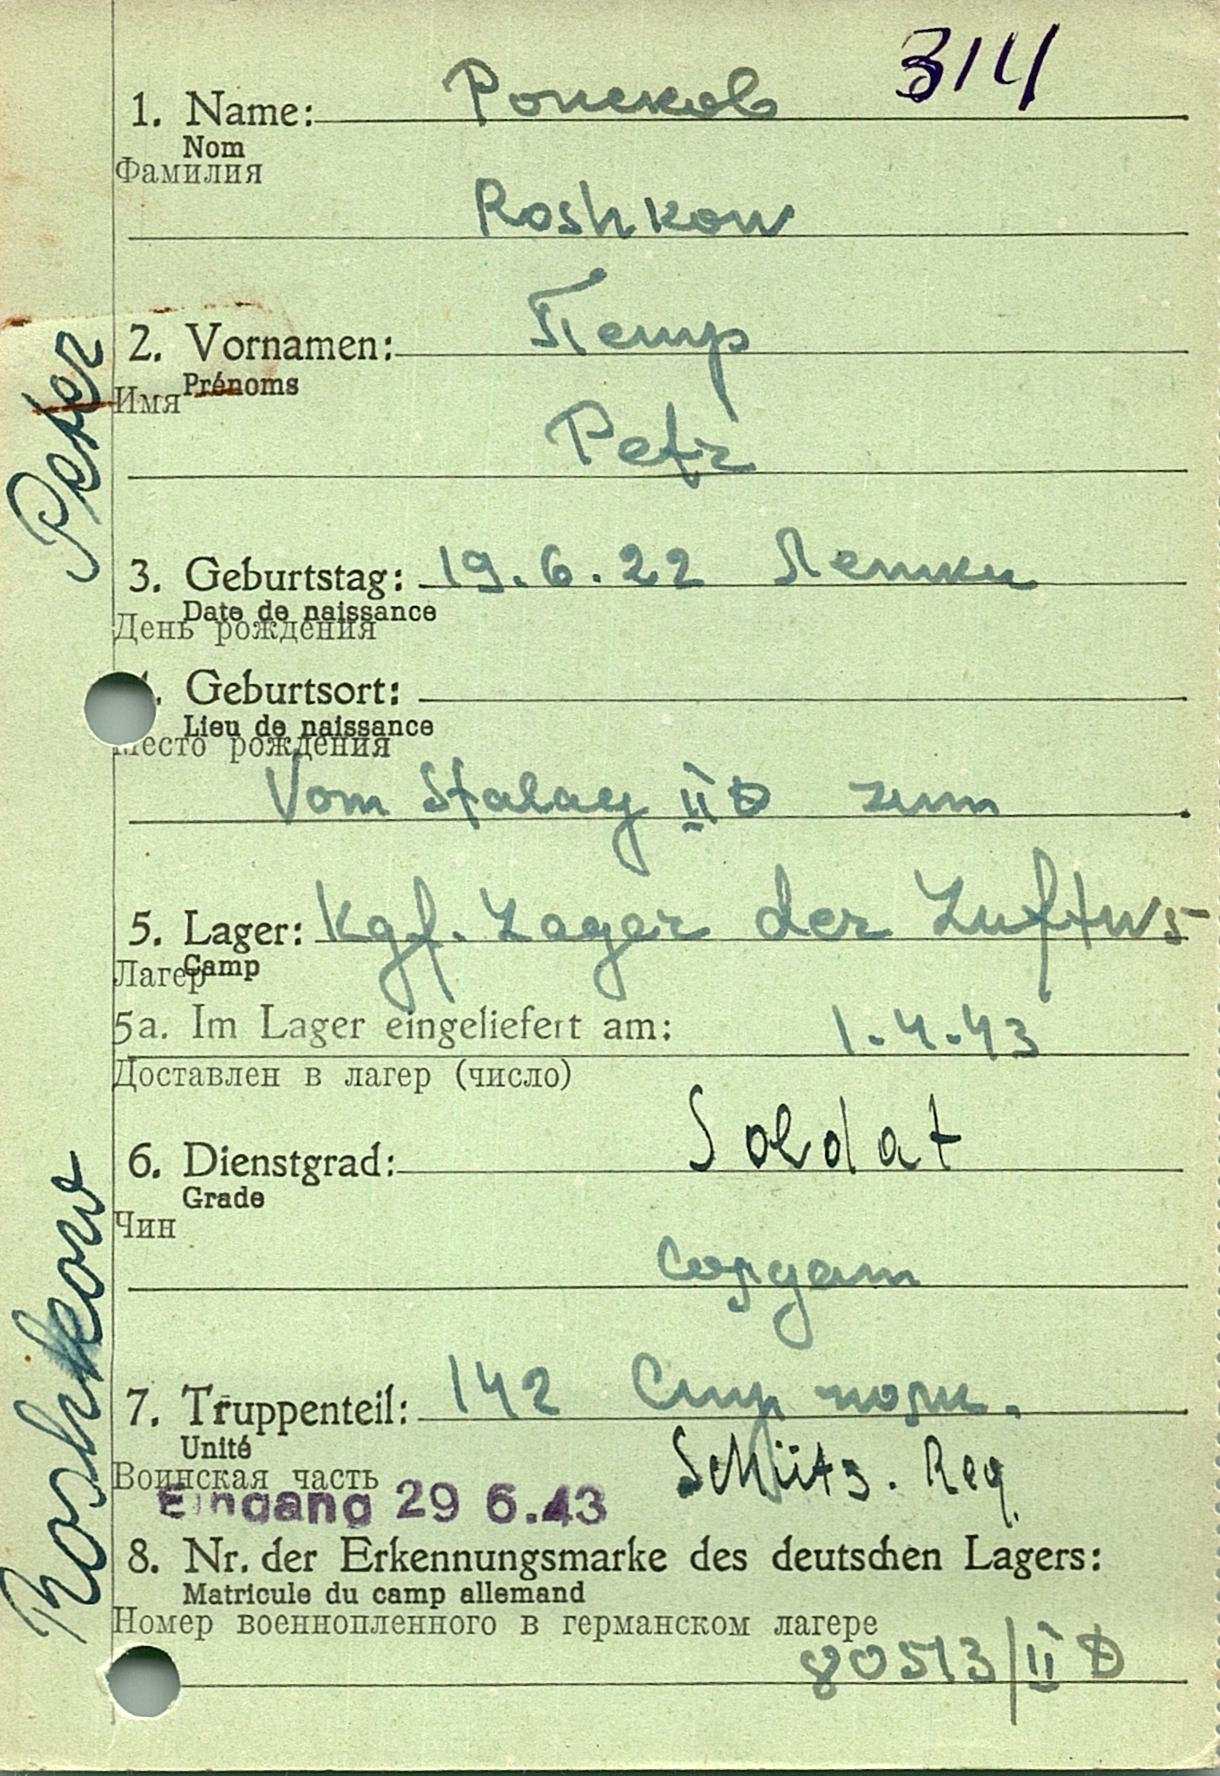 314
1. Name: Рошков
Nom
Фамилия
Roshkow
2. Vornamen: Петр
Prénoms
Имя
Petr
3. Geburtstag: 19.6.22
Date de naissance
День рождения
. Geburtsort:
Lieu de naissance
место рождения
Vom Stalag II D zum
5. Lager: Kgf. Lager der Luftw 5
Camp
Лагер
5a. Im Lager eingeliefert am: 1.4.43
Доставлен в лагер (число)
6. Dienstgrad: Soldat
Grade
Чин
Солдат
7. Truppenteil: 142 Стр полк.
Unité
Воинская часть
Schütz. Reg.
Eingang 29 6.43
8. Nr. der Erkennungsmarke des deutschen Lagers:
Matricule du camp allemand
Номер военнопленного в германском лагере
80513/II D
Peter
Roshkow